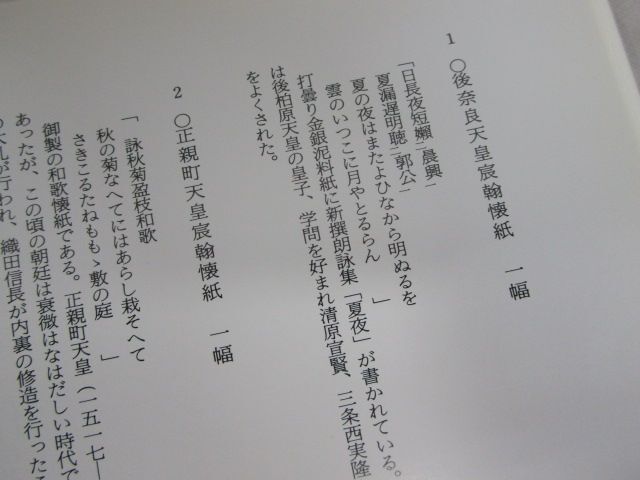 1 ○後奈良天皇宸翰懐紙 一幅
「日長夜短瀬ニ晨興一
夏漏遅明聴ニ郭公一
夏の夜はまたよひなから明ぬるを
雲のいつこに月やとるらん 」
打曇り金銀泥料紙に新撰朗詠集「夏夜」が書かれている。
は後柏原天皇の皇子、学問を好まれ清原宣賢、三条西実隆
をよくされた。
2 ○正親町天皇宸翰懐紙 一幅
「 詠秋菊盈枝和歌
秋の菊なへてにはあらし栽そへて
さきこるたねもゝ敷の庭 」
御製の和歌懐紙である。正親町天皇(一五一七―
あったが、この頃の朝廷は衰微はなはだしい時代で
の大礼が行われ、織田信長が内裏の修造を行ったこ